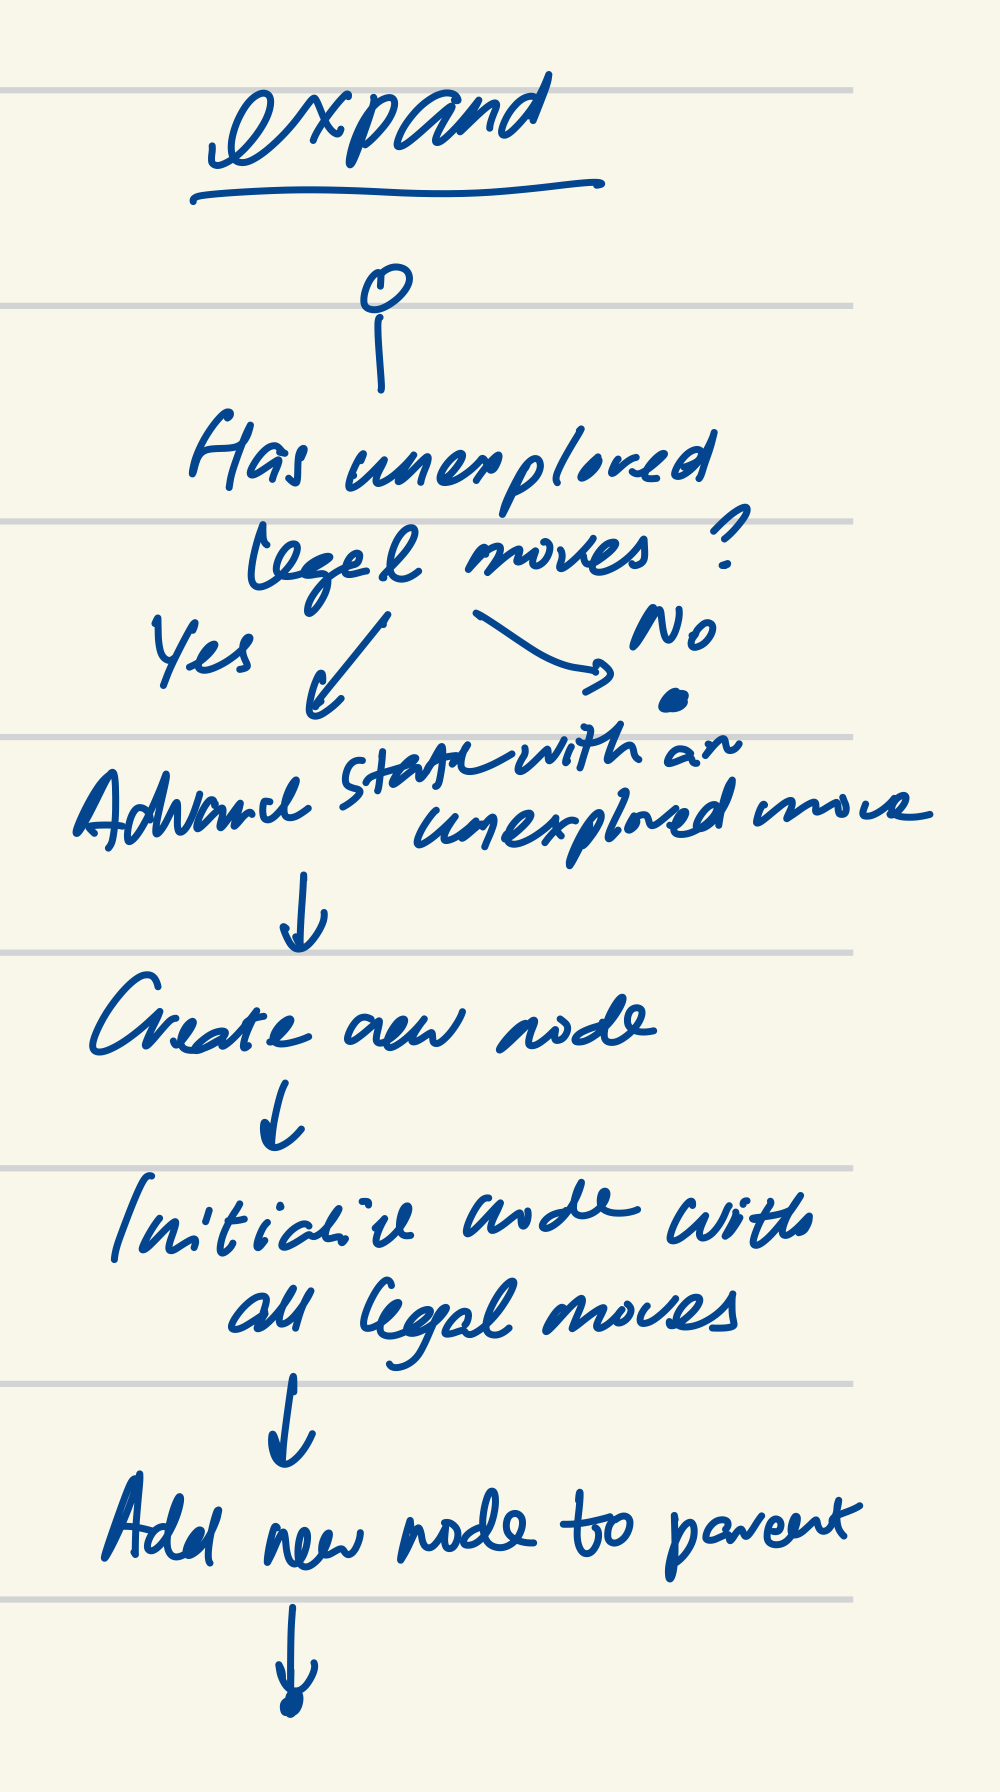 expand
Has unexplored
legal moves ?
Yes
No
Advance state with an
unexplored move
Create new node
Initialize node with
all legal moves
Add new node to parent